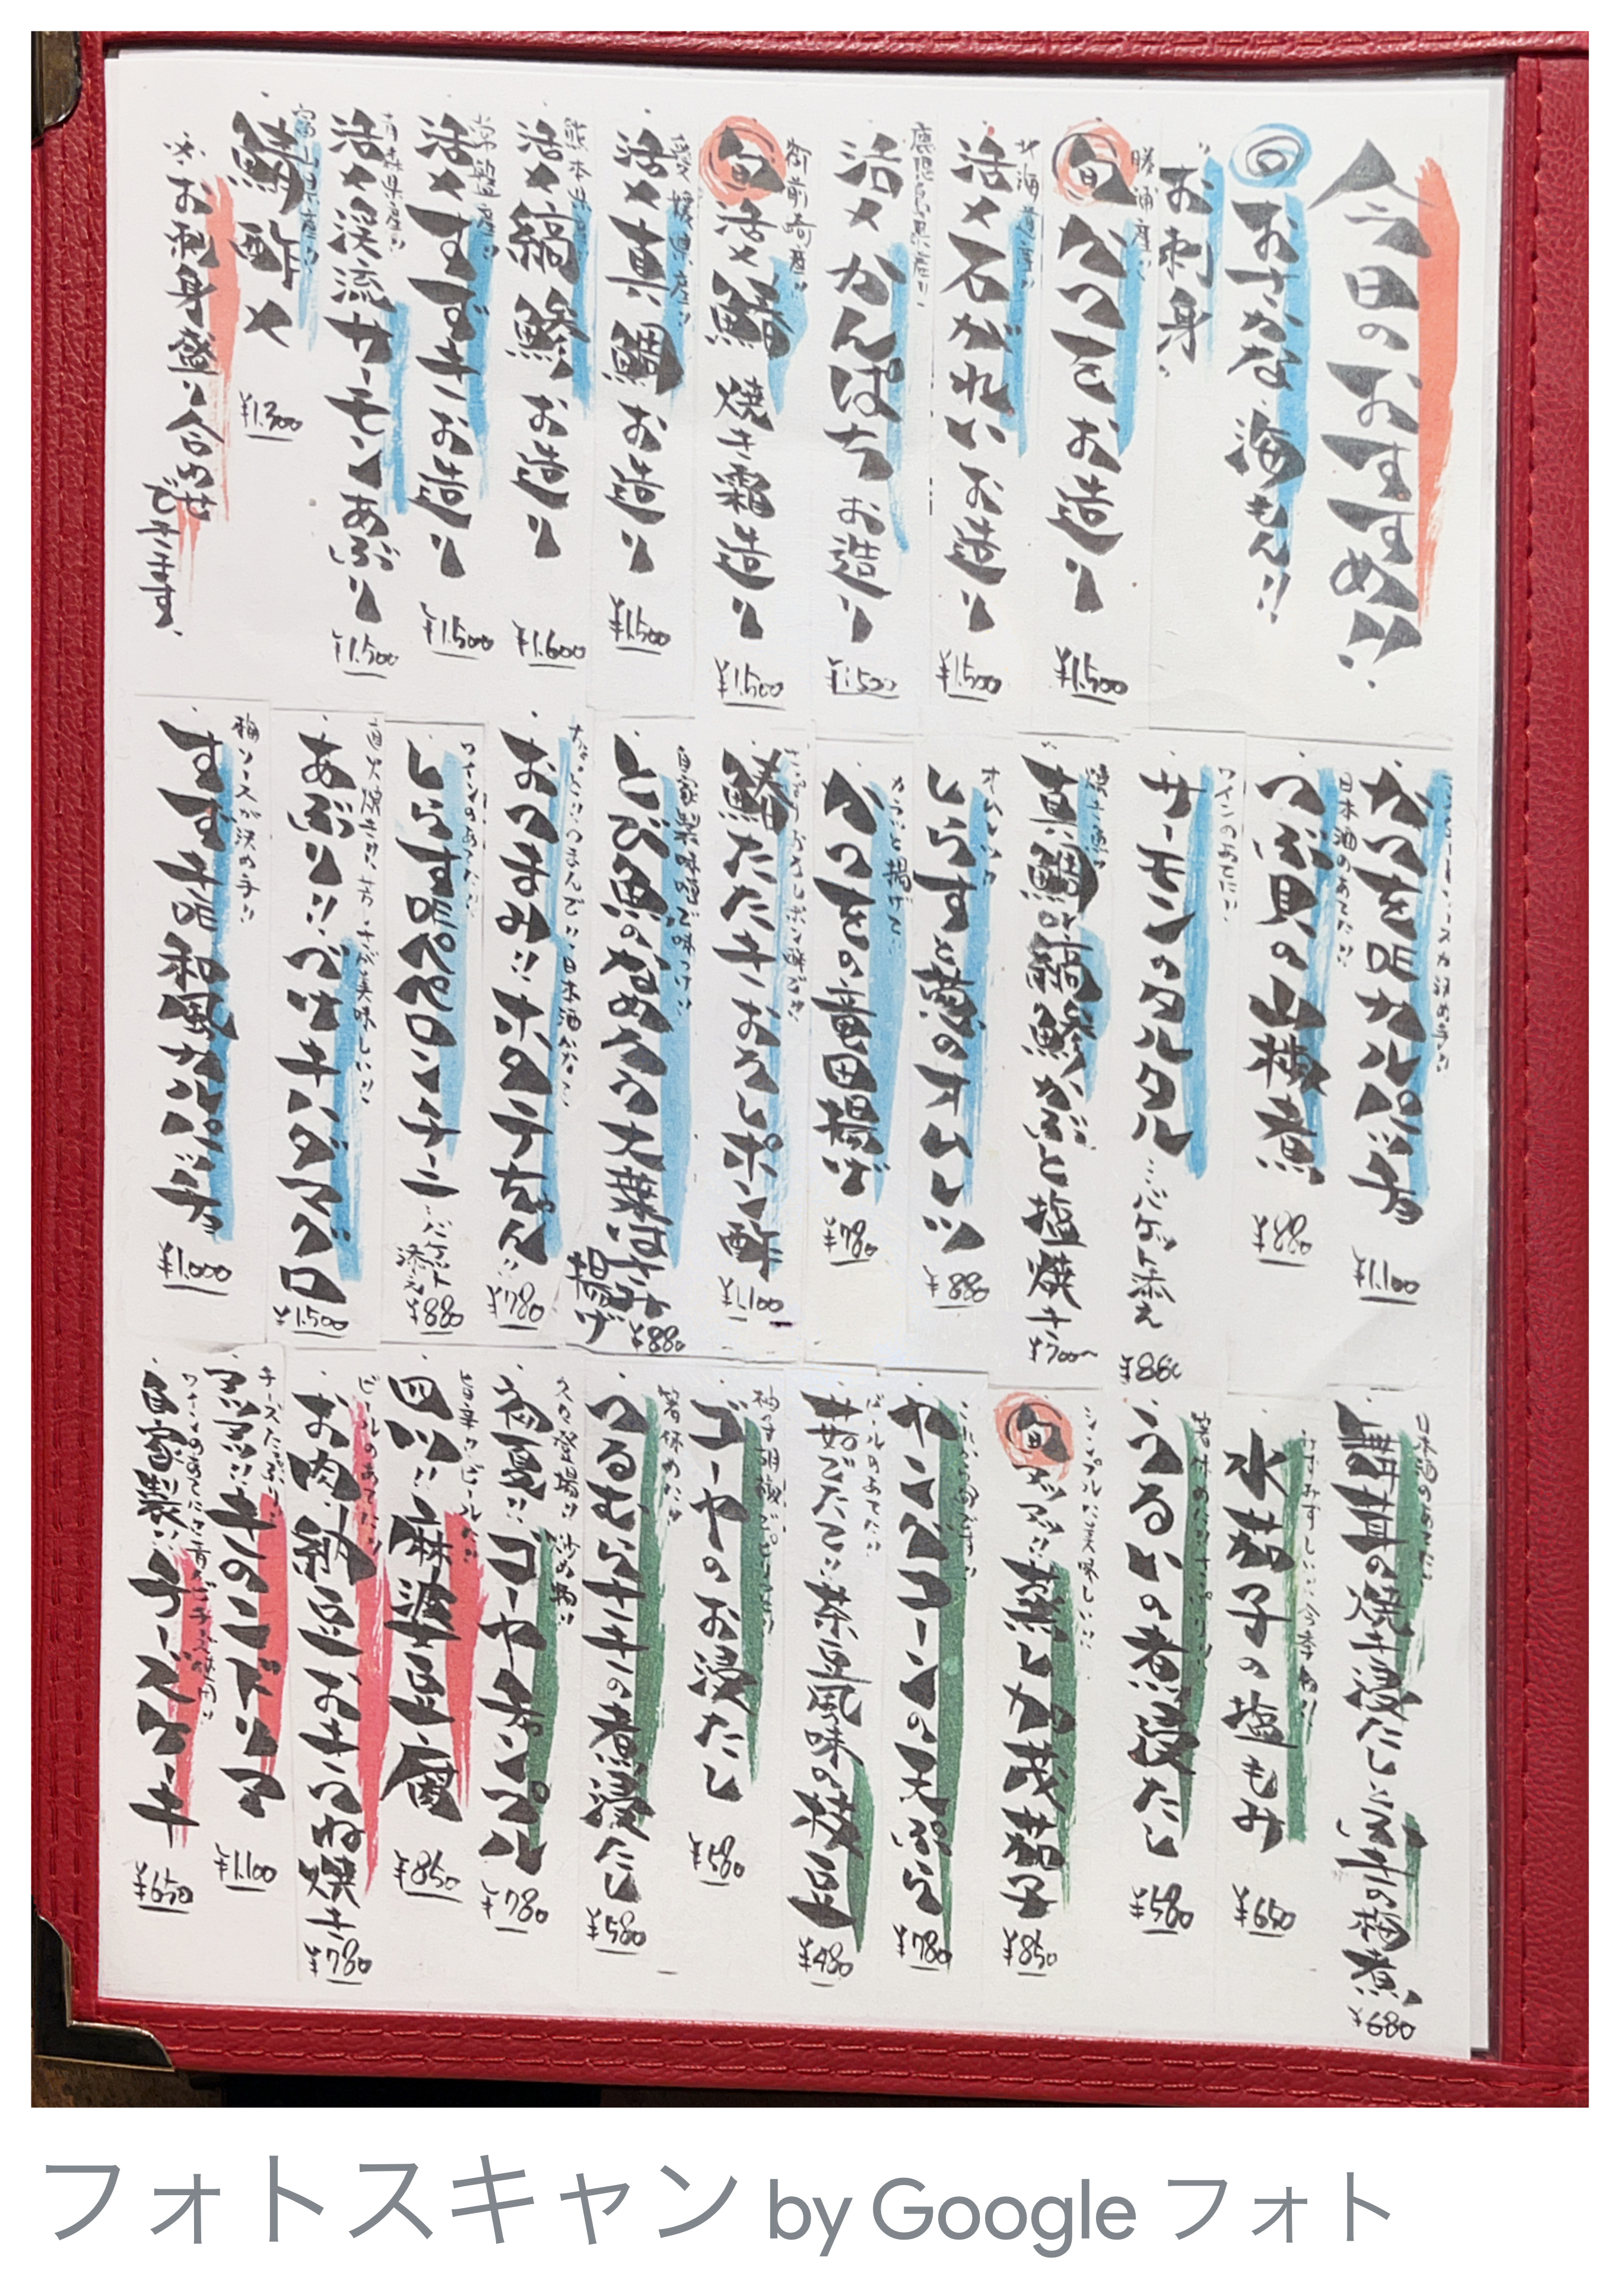 今日のおすすめ!!
回おさかな海もん!!
お刺身
勝浦産!!
旬 かつをお造り ¥1.500
北海道産!!
活〆石がれいお造り ¥1.500
鹿児島県産!!
活〆かんぱちお造り ¥1.500
御前崎産!!
旬 活〆鰆焼き霜造り ¥1.500
愛媛県産!!
活〆真鯛お造り ¥1.500
熊本県産!!
活〆縞鯵お造り ¥1.600
常磐産!!
活〆すずきお造り ¥1.500
青森県産!!
活〆渓流サーモンあぶり ¥1.500
富山県産!!
鯖酢〆 ¥1.300
※お刺身盛り合わせできます。
ソースが決め手!!
かつを DE カルパッチョ ¥1.100
日本酒のあてに!!
つぶ貝の山椒煮 ¥880
ワインのあてに!!
サーモンのタルタル…バゲット添え ¥880
真鯛・縞鯵かぶと塩焼き ¥700〜
しらすと葱のオムレツ ¥880
カラッと揚げて!!
かつをの竜田揚げ ¥780
鰆たたきおろしポン酢 ¥1.100
自家製味噌で味つけ!!
とび魚のなめろう大葉はさみ揚げ ¥880
おつまみ!! ホタテちゃん!! ¥780
ワインのあてに!!
しらす DE ペペロンチーニ…バゲット添え ¥880
直火焼き!! 芳ばしさが美味しい!!
あぶり!! づけキハダマグロ ¥1.500
梅ソースが決め手!!
すずき DE 和風カルパッチョ ¥1.000
日本酒のあてに!!
無花果の焼き浸たし ¥680
みずみずしい!! 今季初!!
水茄子の塩もみ ¥650
箸休めに!!
うるいの煮浸たし ¥580
シンプルに美味しい!!
旬 アツアツ!! 蒸し加茂茄子 ¥850
ヤングコーンの天ぷら ¥780
ビールのあてに!!
茹でたて!! 茶豆風味の枝豆 ¥480
柚子胡椒でピリリと!!
ゴーヤのお浸たし ¥580
箸休めに!!
つるむらさきの煮浸たし ¥580
久々登場!! 炒め物!!
初夏!! ゴーヤチャンプル ¥780
旨辛でビールに!!
四川!! 麻婆豆腐 ¥850
ビールのあてに!!
お肉、納豆おきつね焼き ¥780
チーズたっぷり!!
アツアツ!! きのこドリア ¥1.100
自家製!! チーズケーキ ¥650
フォトスキャン by Google フォト